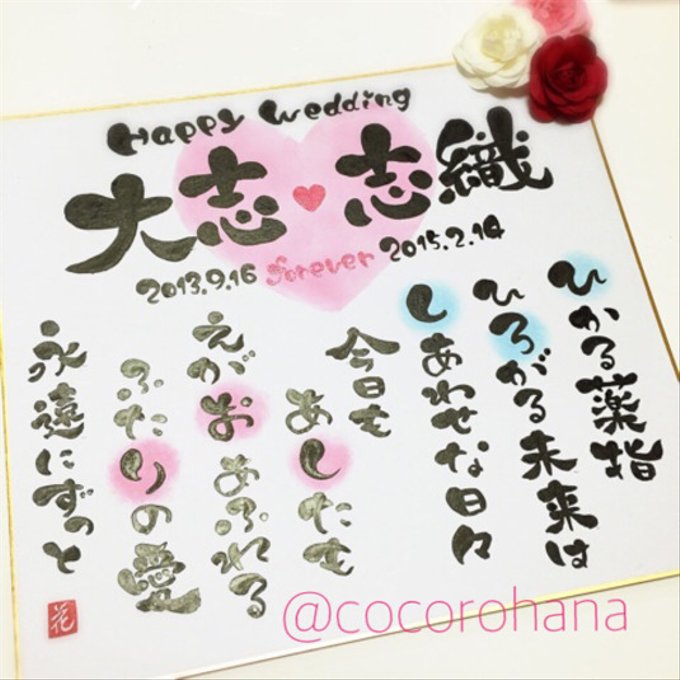 Happy Wedding
大志♥志織
2013.9.16 forever 2015.2.14
ひかる薬指
ひろがる未来は
しあわせな日々
今日も
あしたも
えがおあふれる
ふたりの愛
永遠にずっと
花
@cocorohana